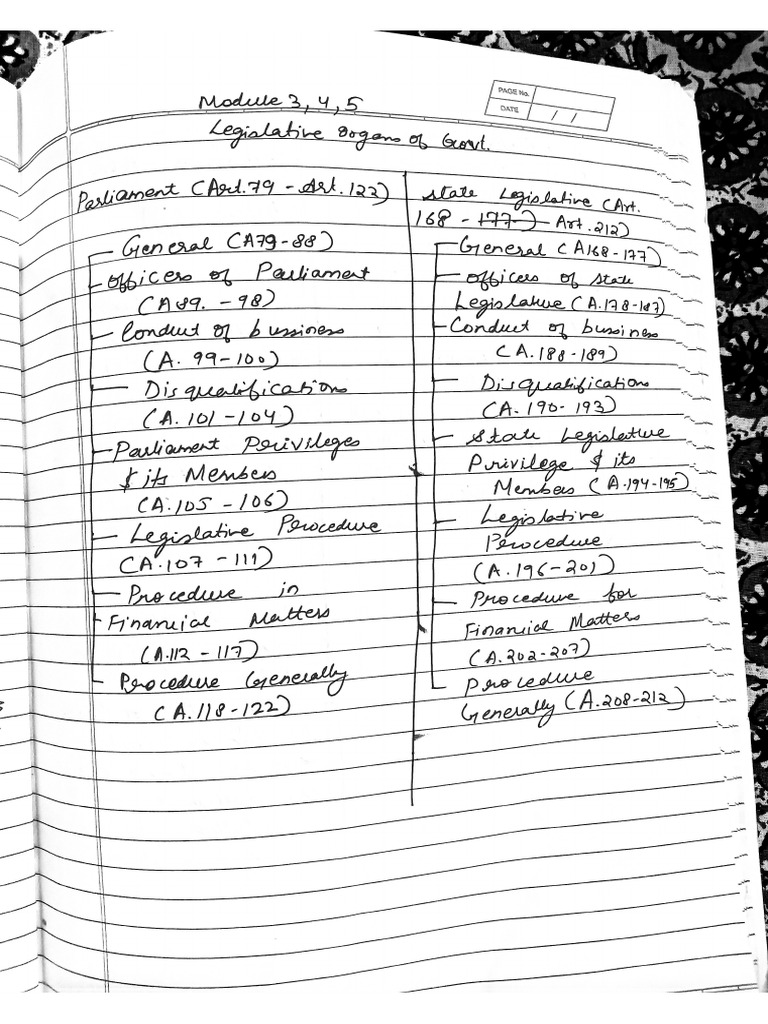 PAGE No.
DATE / /
Module 3, 4, 5
Legislative Organs of Govt.
Parliament (Art.79 - Art.122)
General (A79-88)
Officers of Parliament
(A 89. - 98)
Conduct of bussiness
(A. 99-100)
Disqualifications
(A. 101 - 104)
Parliament Privileges
& its Members
(A.105 - 106)
Legislative Procedure
(A.107 - 111)
Procedure in
Financial Matters
(A.112 - 117)
Procedure Generally
(A.118-122)
State Legislative (Art.
168 - 177) - Art.212)
General (A168-177)
Officers of State
Legislature (A.178-187)
Conduct of bussiness
(A.188-189)
Disqualification
(A. 190-193)
State Legislature
Privilege & its
Members (A.194-195)
Legislative
Procedure
(A.196-201)
Procedure for
Financial Matters
(A.202-207)
Procedure
Generally (A.208-212)